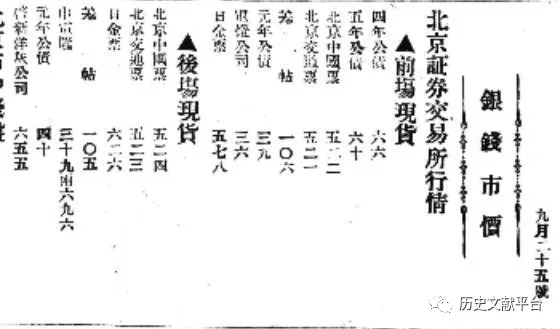 九月二十五號
銀錢市價
北京証券交易所行情
▲前場現貨
四年公債 六六
五年公債 六十
北京中國票 五二二
北京交通票 五二一
羌帖 一〇六
元年公債 三九
電燈公司 三六
日金票 五七八
▲後場現貨
北京中國票 五二四
北京交通票 五二三
日金票 六二六
羌帖 一〇五
三十九兩六九六
元年公債 四十
啓新洋灰公司 六五五
历史文献平台